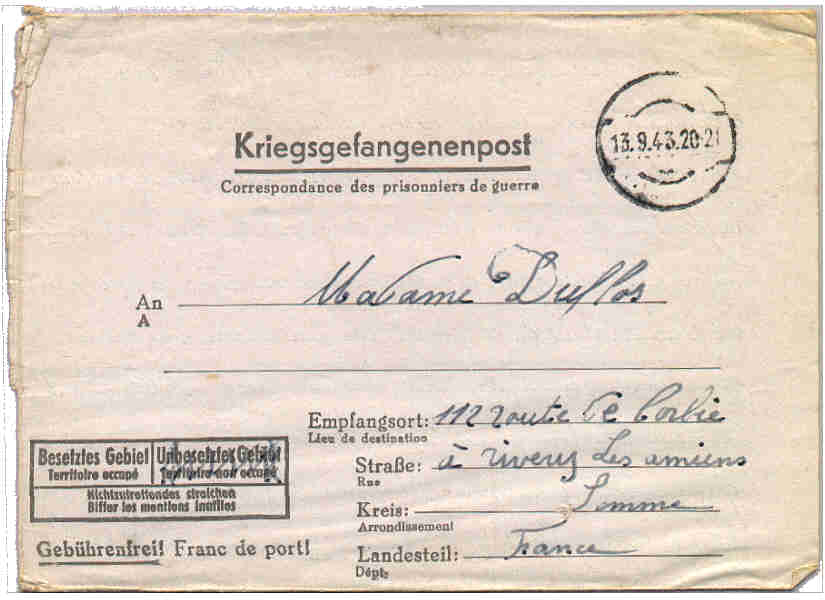 13.9.43.20-21
Kriegsgefangenenpost
Correspondance des prisonniers de guerre
An Madame Duflos
A
Empfangsort: 112 route de Corbie
Lieu de destination
Straße: à rivery Les amiens
Rue
Kreis: Somme
Arrondissement
Landesteil: France
Dépt:
Besetztes Gebiet Unbesetztes Gebiet
Territoire occupé Territoire non occupé
Nichtzutreffendes streichen
Biffer les mentions inutiles
Gebührenfrei! Franc de port!